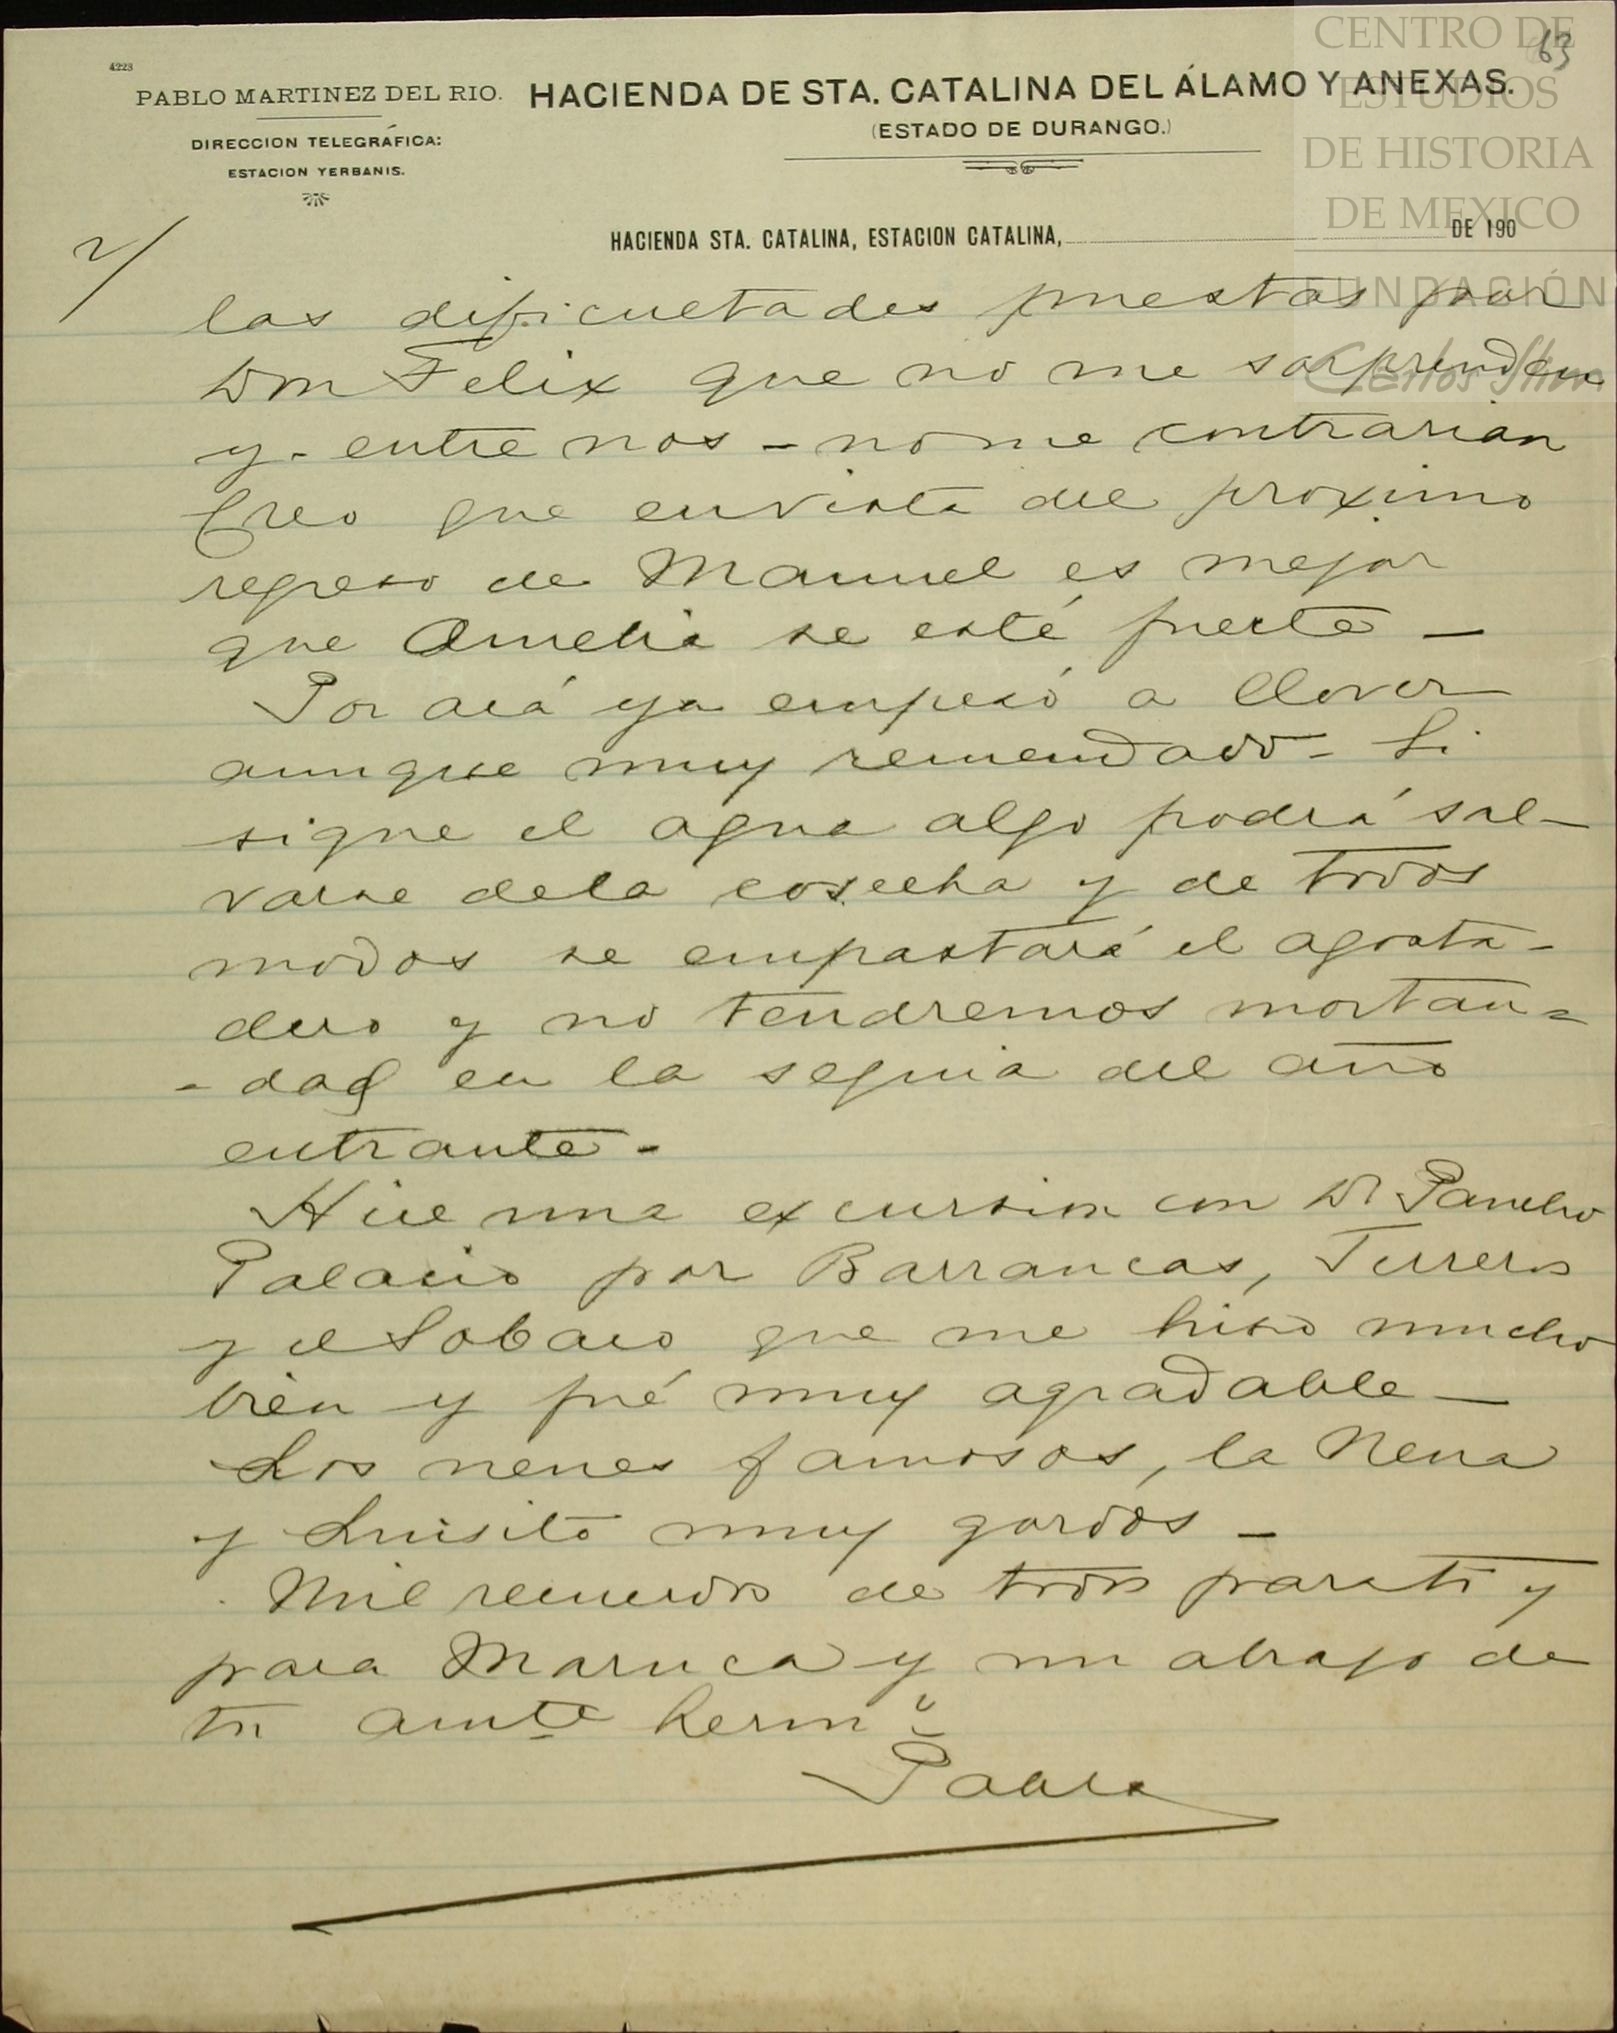 63
4223
PABLO MARTINEZ DEL RIO.
DIRECCION TELEGRÁFICA:
ESTACION YERBANIS.
HACIENDA DE STA. CATALINA DEL ÁLAMO Y ANEXAS.
(ESTADO DE DURANGO.)
HACIENDA STA. CATALINA, ESTACION CATALINA, DE 190
CENTRO DE
ESTUDIOS
DE HISTORIA
DE MEXICO
FUNDACIÓN
Carlos Slim
2/
las dificultades puestas por
Don Felix que no me sorprenden
y - entre nos - no me contrarian
Creo que en vista del proximo
regreso de Manuel es mejor
que Amelia se esté fuerte -
Por acá ya empesó a llover
aunque muy remendado - Si
sigue el agua algo podrá sal-
varse de la cosecha y de todos
modos se empastará el agosta-
dero y no tendremos mortan=
-dad en la sequia del año
entrante -
Hice una excursion con Dn Pancho
Palacio por Barrancas, Terreros
y el Sobaco que me hiso mucho
bien y fué muy agradable -
Los nenes famosos, la Nena
y Luisito muy gordos -
Mil recuerdos de todos para ti y
para Maruca y un abrazo de
tu amte hermo
Pablo